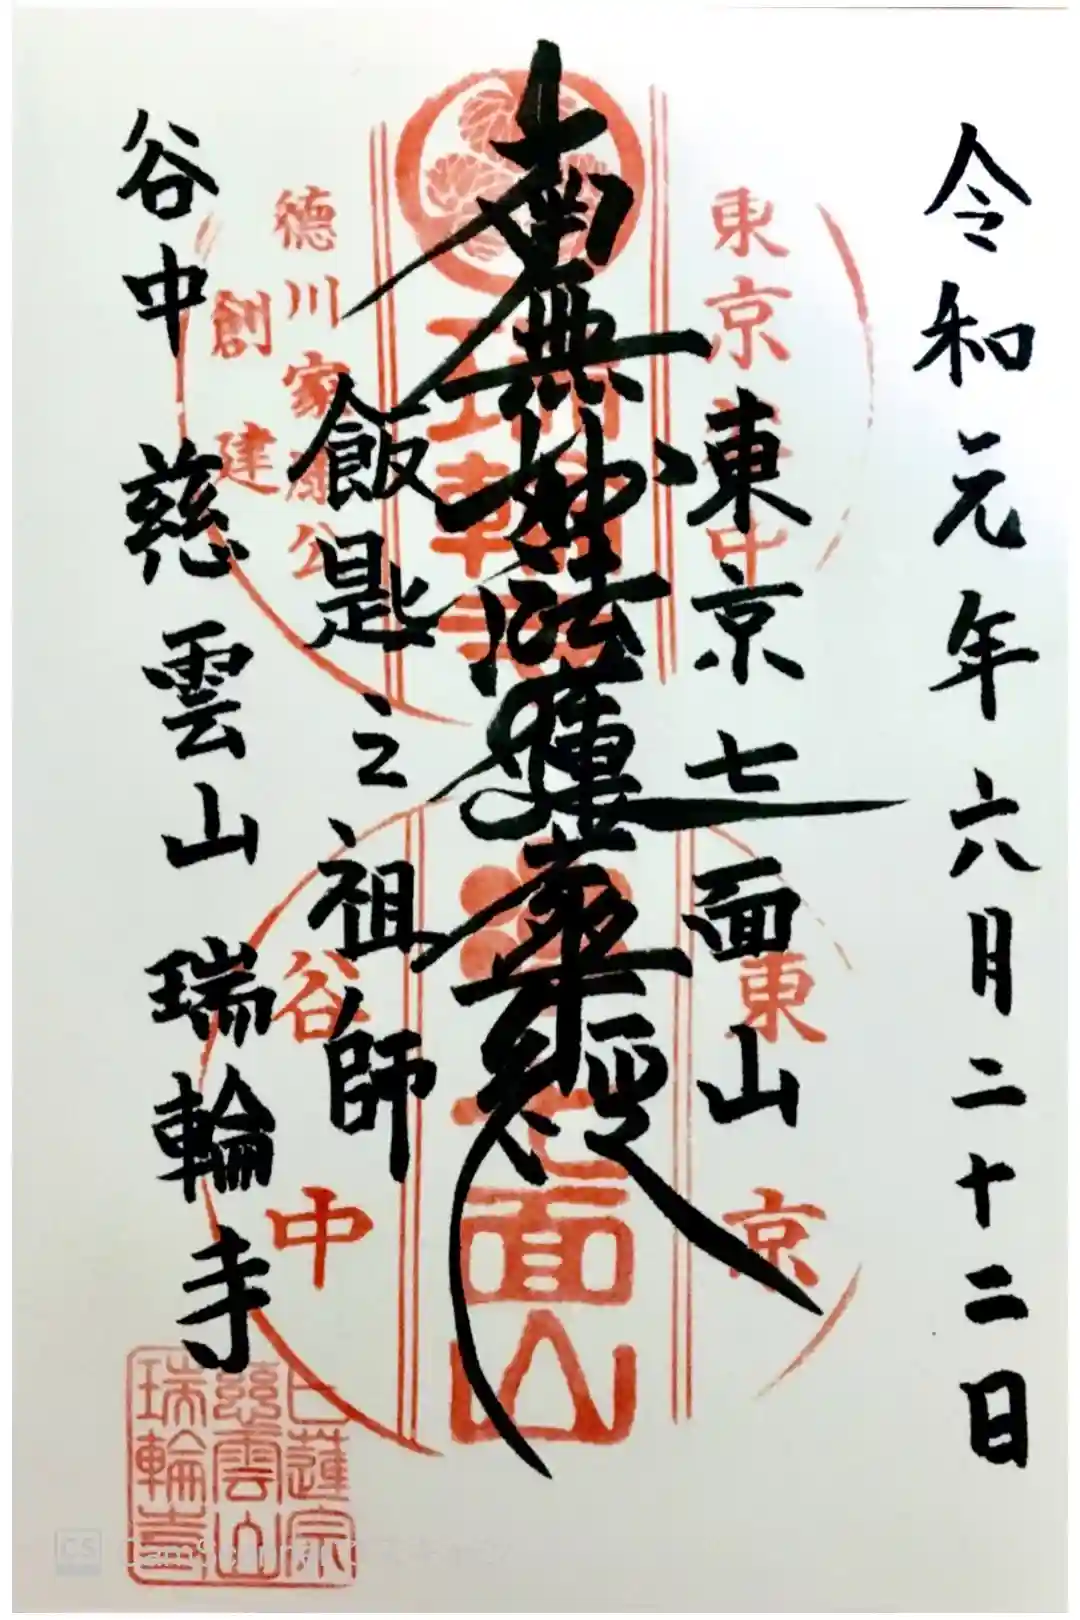 令和元年六月二十二日
東京七面山
南無妙法蓮華経
飯匙之祖師
谷中 慈雲山 瑞輪寺
東京谷中
瑞輪寺
徳川家康公
創建
東京
七面山
谷中
日蓮宗
慈雲山
瑞輪寺
CS CamScanner でスキャン